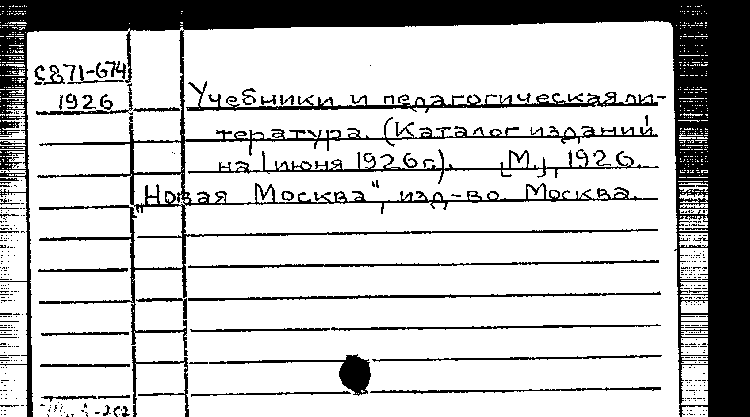 С871-674
1926
Учебники и педагогическая ли-
тература. (Каталог изданий
на 1 июня 1926 г.). [М.], 1926.
„Новая Москва", изд-во. Москва.